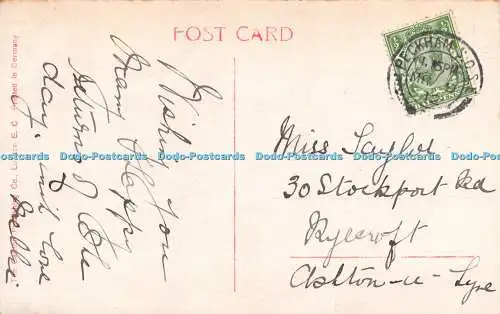 POST CARD
PECKHAM S.O. S.E
Wishing you
Many Happy
Returns of the
day, with love
Nellie
Miss Taylor
30 Stockport Rd
Rycroft
Ashton-u-Lyne
Co., London E.C. Printed in Germany
Dodo-Postcards Dodo-Postcards Dodo-Postcards Dodo-Postcards Dodo-Postcards